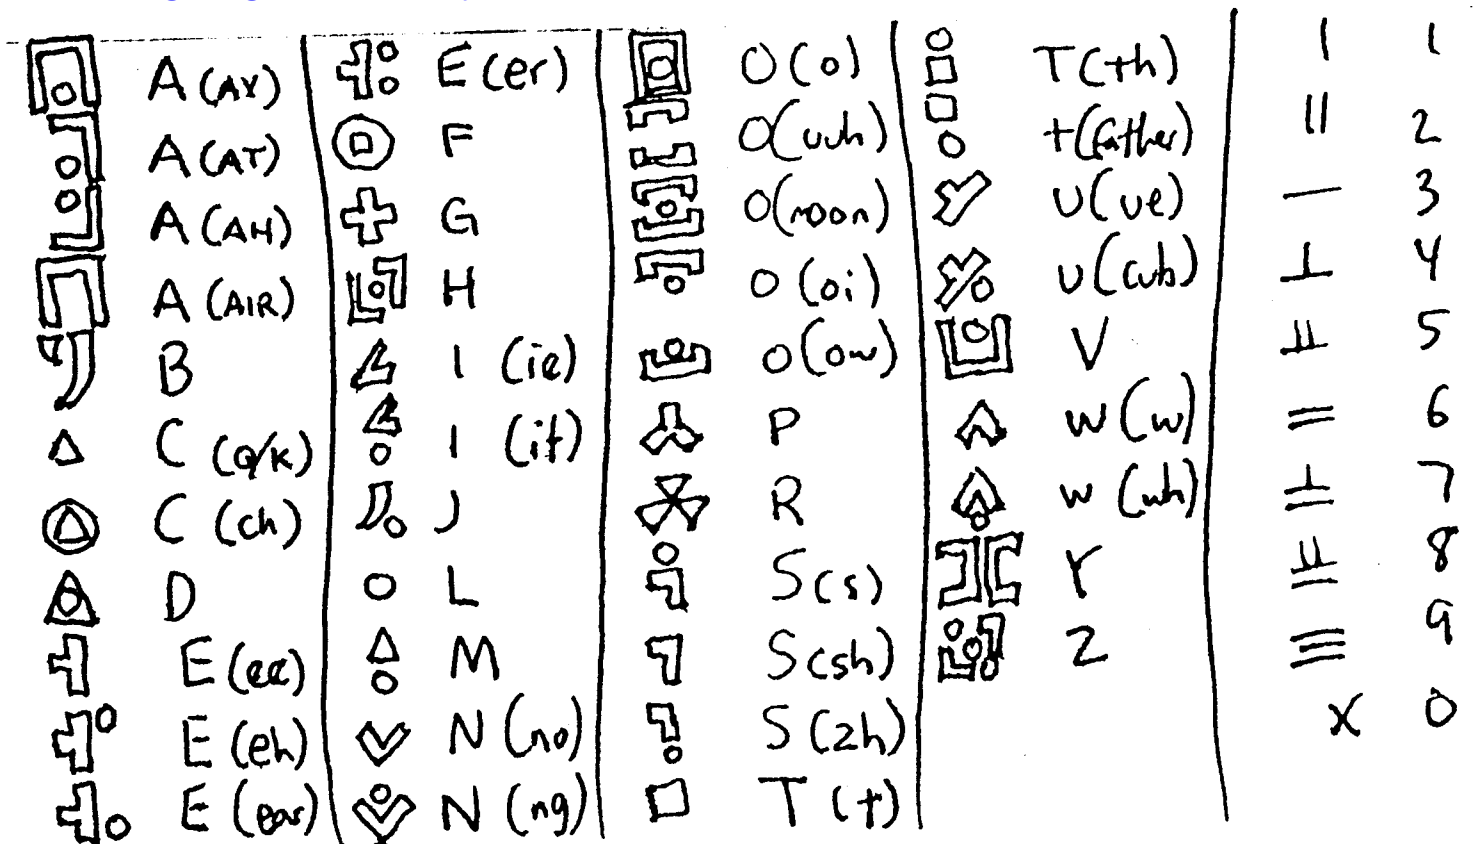 A (AY)
A (AT)
A (AH)
A (AIR)
B
C (Q/K)
C (ch)
D
E (ee)
E (eh)
E (ear)
E (er)
F
G
H
I (ie)
I (it)
J
L
M
N (no)
N (ng)
O (o)
O (uuh)
O (moon)
O (oi)
O (ow)
P
R
S (s)
S (sh)
S (zh)
T (t)
T (th)
t (father)
U (ue)
U (cub)
V
W (w)
W (wh)
Y
Z
1
2
3
4
5
6
7
8
9
X 0